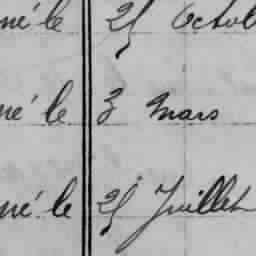 né le 25 Octob
né le 3 Mars
né le 25 Juillet